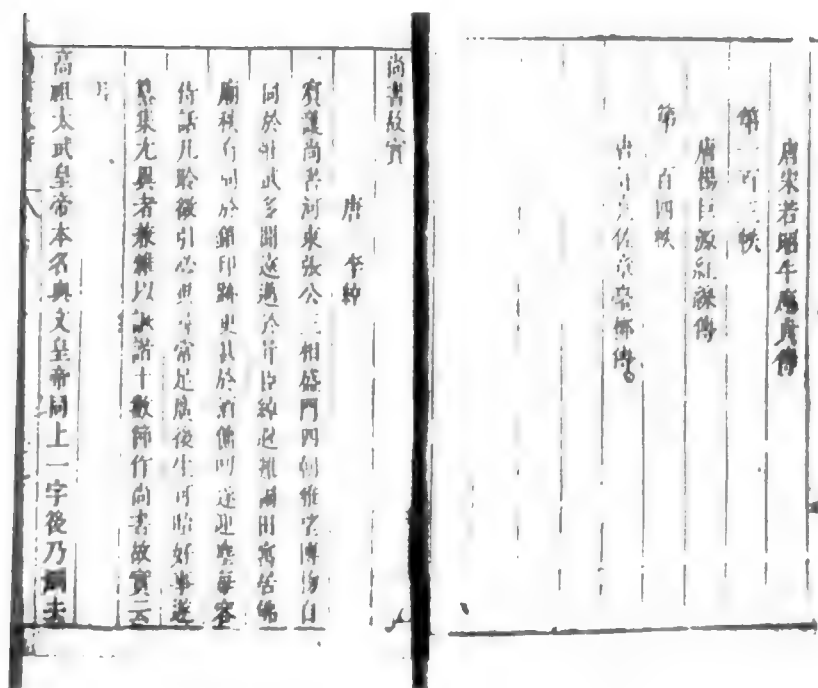 唐宋若昭牛應貞傳
第一百三帙
唐楊巨源紅線傳
第一百四帙
佐章臺柳傳
尚書故實
唐 李綽
賓護尚書河東張公三相盛門四朝雅望博物自
同於壯武多聞遠邁於胥臣綽避難圃田寓居佛
廟秩有同於錦印跡更甚於酒傭叨遂迎塵每容
侍話凡聆徵引必異尋常足廣後生可貽好事遂
纂集尤異者兼雜以詼諧十數節作尚書故實云
耳
高祖太武皇帝本名與文皇帝同上一字後乃刪去